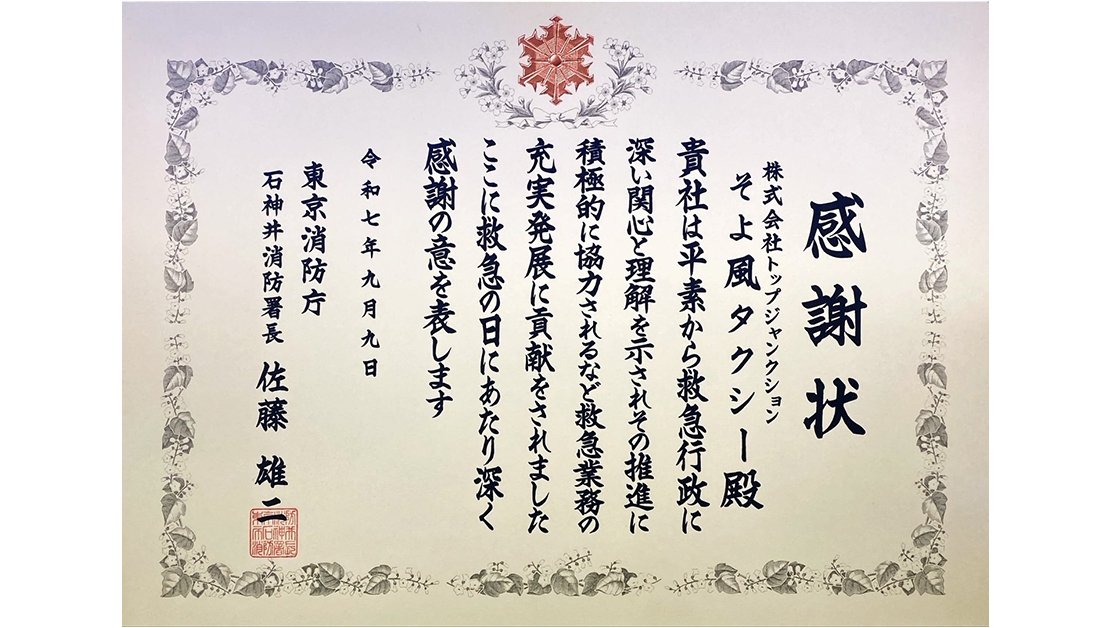 感謝状
株式会社トップジャンクション
そよ風タクシー殿
貴社は平素から救急行政に
深い関心と理解を示されその推進に
積極的に協力されるなど救急業務の
充実発展に貢献をされました
ここに救急の日にあたり深く
感謝の意を表します
令和七年九月九日
東京消防庁
石神井消防署長 佐藤雄二